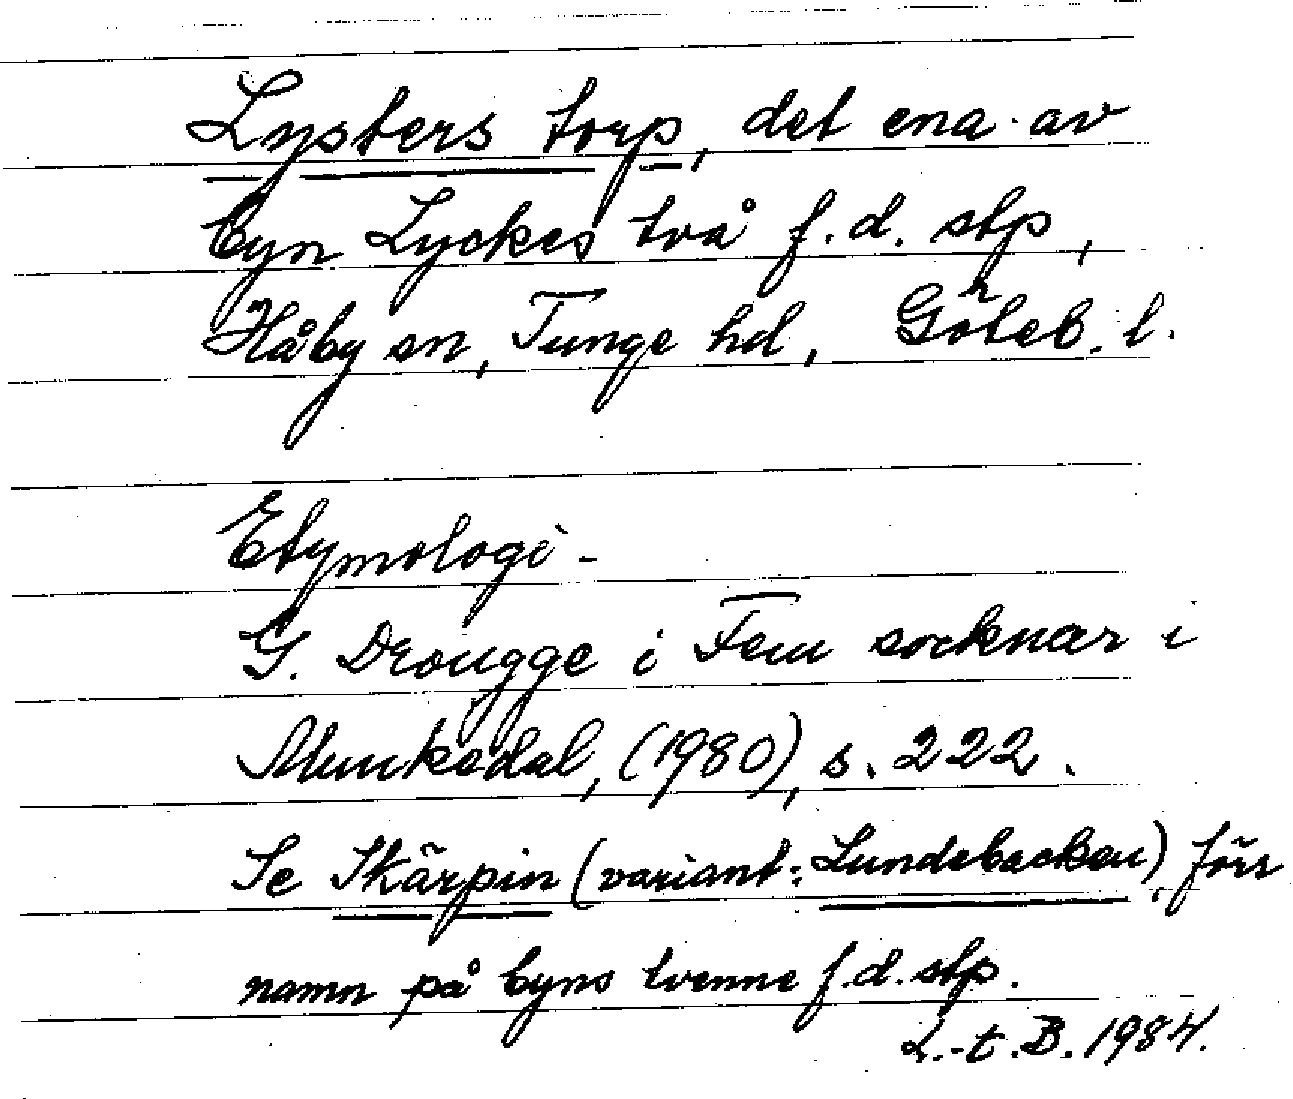 Lysters torp, det ena av
byn Lyckes två f.d. stp,
Håby sn, Tunge hd, Göteb. l.
Etymologi -
G. Drougge i Fem socknar i
Munkedal, (1980), s. 222.
Se Skärpin (variant: Lundebacken), förr
namn på byns tvenne f.d. stp.
L.-t. B. 1984.